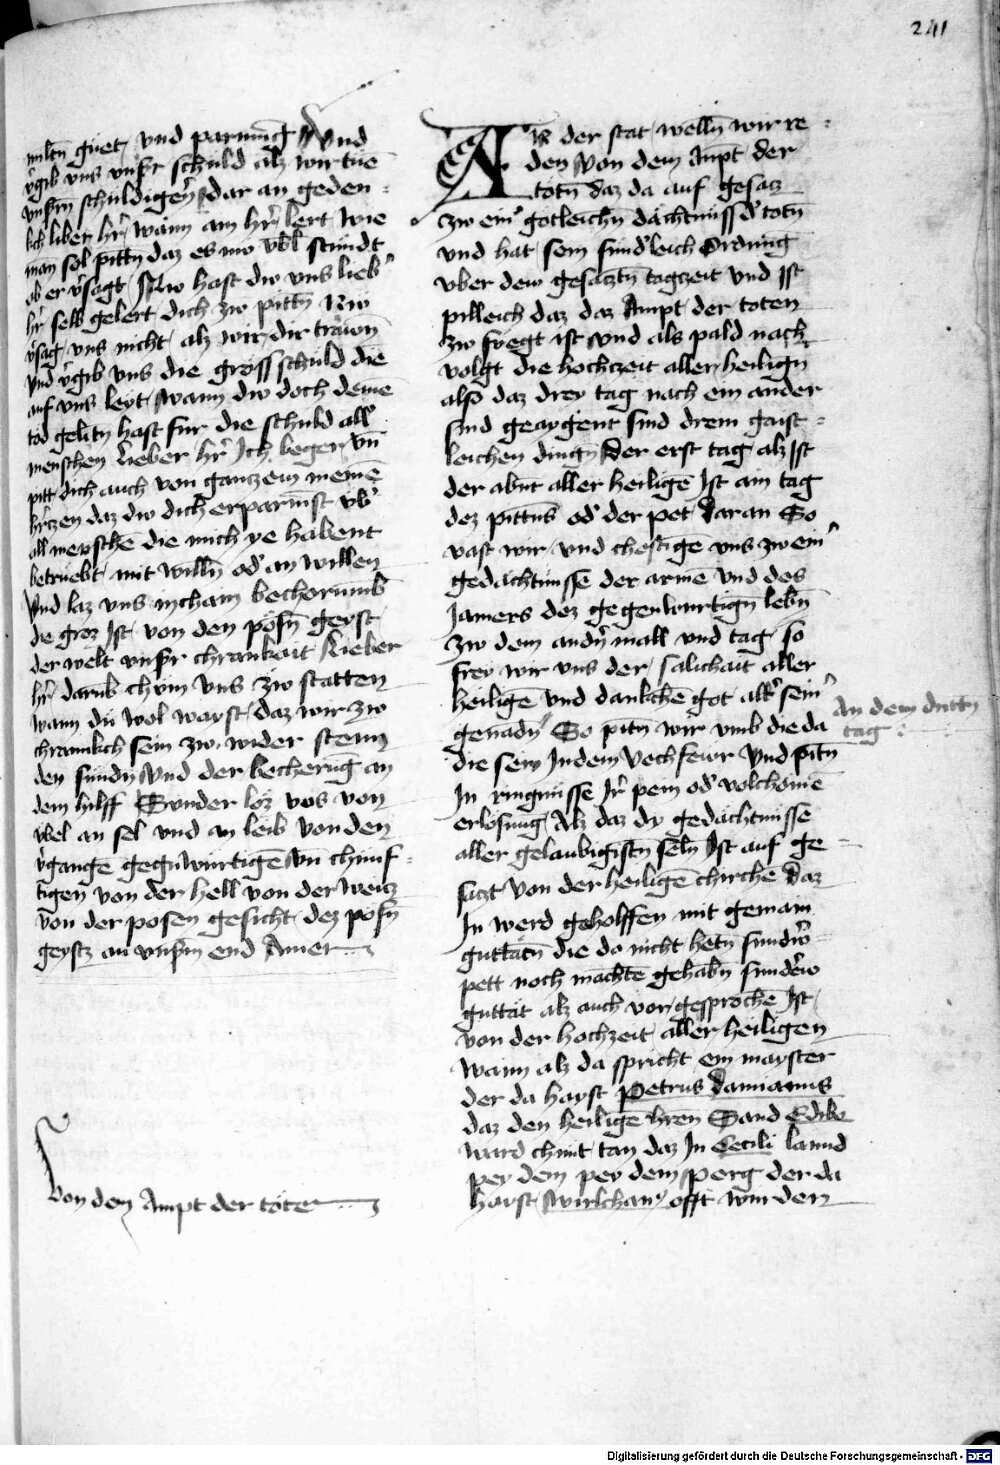 241
miltn guet vnd parmūg Vnd
v̄gib vns vnsr̄ schuld alz wir tuē
vnsrn schuldigern dar an geden=
kch liber hr̄ wann am hr̄ lert wie
man sol pittn daz es im vbl stundt
ob er v̄sagt Nw hast dw vns lieb̾
hr̄ selb gelert dich zw pittn Nw
v̄sag vns nicht alz wir dir trawn
vnd v̄gib vns die gross schuld die
auf vns leyt wann dw doch deinē
tod gelitn hast fur die schuld all̾
menschen Lieber hr̄ Ich beger vn̄
pitt dich auch von ganczem meinē
hr̄czen daz dw dich erparmst vb̾
all menschē die mich ye habent
betruebt mit willn od̾ an willen
Vnd laz vns in cham bechorumb
die groz ist von den posn̄ geyst
der welt vnsr̄ chrankait Lieber
hr̄ darūb chum vns zw statten
wann du wol wayst daz wir zw
chrannkch sein zw wider stenn
den sundn̄ vnd der becherūg an
dein hilff Sunder loz vns von
vbel an sel vnd an leib von den
v̄gangē gegn̄wurtigē vn̄ chunf=
tigen von der hell von der weicz
von der posen gesicht dez posn̄
geystz an vnsrm end Amen
Von dem Ampt der totē
An der stat welln̄ wir re=
den von dem Ampt der
totn̄ daz da auf gesacz
zw ein̾ gotleichn̄ dachtnuss d̾ totn̄
vnd hat sein sund̾leich Ordnūg
vber dew gesacztn̄ tagzeit vnd ist
pilleich daz daz Ampt der toten
zw fuegt ist vnd als pald nach
volgt die hochczeit aller heilign̄
also daz drey tag nach ein ander
sind geaygent sind drein gaist=
leichen dingn̄ Der erst tag alz ist
der abnt aller heiligē Ist ain tag
dez pittns od̾ der pet daran So
vast wir vnd chestigē vns zw ein̾
gedachtnusse der armē vnd des
Jamers dez gegenburtign̄ lebn̄
zw dem andn̄ mall vnd tag so
frey wir vns der salichait aller
heiligē vnd dankche got all̾ sein̾
genadn̄ So pitn̄ wir vmb die da
An dem drittn̄
tag
die sein Jn dem vechfewr Vnd pitn̄
Jn ringnusse Jr̄ pein od̾ volchomē
erlosung Alz daz dy gedachtnusse
aller gelaubigistn̄ seln̄ Ist auf ge=
saczt von der heiligē chirchē Daz
Jn werd geholffen mit gemain
guttatn̄ die do nicht hetn̄ sundr̄w
pett noch machtē gehabn̄ sundr̄w
guttat alz auch vor gesprochē Ist
von der hochzeit aller heiligen
Wann alz da spricht ein mayster
der da hayst Petrus Damianus
daz den heiligē hren Sand Edilo
ward chunt tan daz Jn Cecili lannd
pey dem pey dem perg der da
hayst wulchan offt wurden